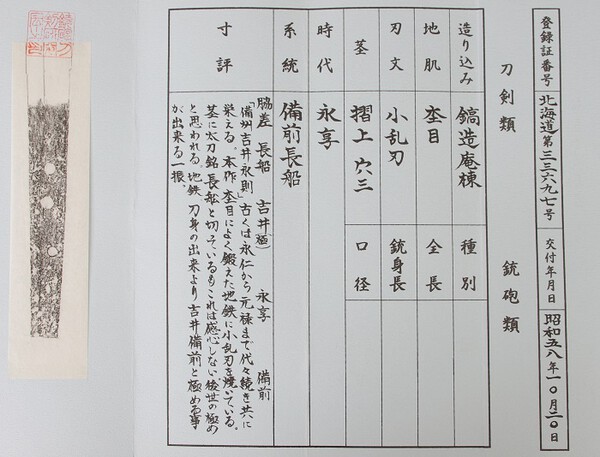 登録証番号 北海道第三三六九七号 交付年月日 昭和五八年一〇月二〇日
刀剣類 銃砲類
造り込み 鎬造庵棟 種別
地肌 杢目 全長
刃文 小乱刃 銃身長
茎 摺上 穴三 口径
時代 永享
系統 備前長船
寸評
脇差 長船 吉井(極) 永享 備前
「備州吉井永則」古くは永仁から元禄まで代々続き共に
栄える。本作 杢目によく鍛えた地鉄に小乱刃を焼いている。
茎に太刀銘長船と切ているもこれは感心しない後世の極め
と思われる。地鉄 刀身の出来より吉井備前と極める事
が出来る一振。